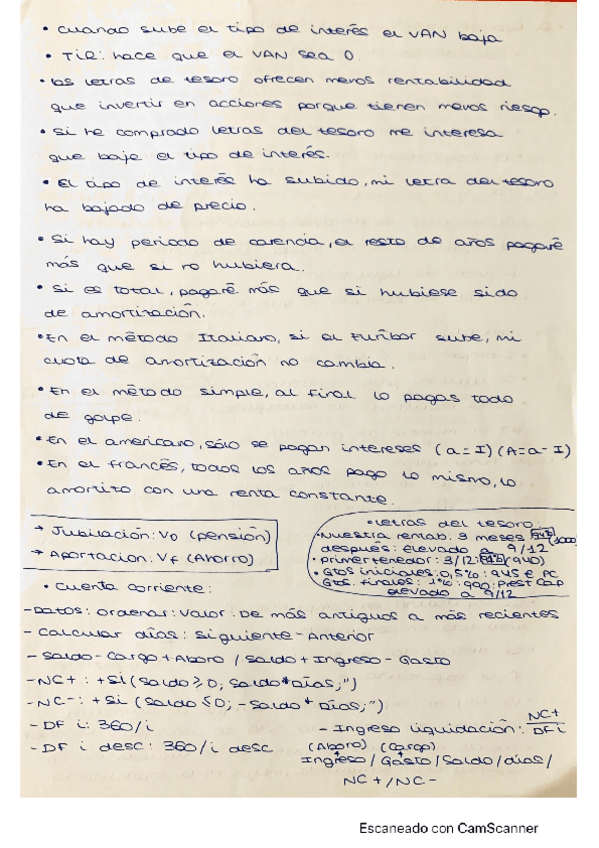 • Cuando sube el tipo de interés el VAN baja
• TIR: hace que el VAN sea 0.
• las letras de tesoro ofrecen menos rentabilidad
que invertir en acciones porque tienen menos riesgo.
• Si he comprado letras del tesoro me interesa
que baje el tipo de interés.
• El tipo de interés ha subido, mi letra del tesoro
ha bajado de precio.
• Si hay periodo de carencia, el resto de años pagaré
más que si no hubiera.
• Si es total, pagaré más que si hubiese sido
de amortización.
• En el método Italiano, si el Euribor sube, mi
cuota de amortización no cambia.
• En el método simple, al final lo pagas todo
de golpe.
• En el americano, sólo se pagan intereses (a=I) (A=a-I)
• En el francés, todos los años pago lo mismo, lo
amortizo con una renta constante.
→ Jubilación: Vo (pensión)
→ Aportación: Vf (Ahorro)
• Letras del tesoro.
• Nuestra rentab. 9 meses 945 (1000)
después: elevado a 9/12
• primer tenedor: 3/12: (940)
• Gtos iniciales: 0,5%: 945 € PC
Gtos. finales: 1%: 990: Prest Cap
elevado a 9/12
• Cuenta corriente:
- Datos: Ordenar: Valor: De más antiguos a más recientes
- Calcular días: Siguiente - Anterior
- Saldo - Cargo + Abono / Saldo + Ingreso - Gasto
- NC+ : +Si (Saldo ≥ 0; Saldo * Días;")
- NC- : +Si (Saldo ≤ 0; -Saldo * Días;")
- DF i: 360/i
- Ingreso liquidación: NC+/DF i
- DF i desc: 360/i desc
(Abono) (Cargo)
Ingreso / Gasto / Saldo / días /
NC+ / NC-
Escaneado con CamScanner